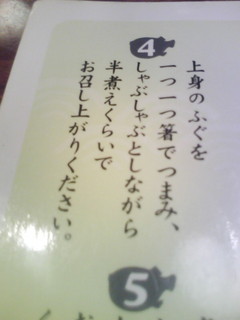 4
上身のふぐを
一つ一つ箸でつまみ、
しゃぶしゃぶとしながら
半煮えくらいで
お召し上がりください。
5